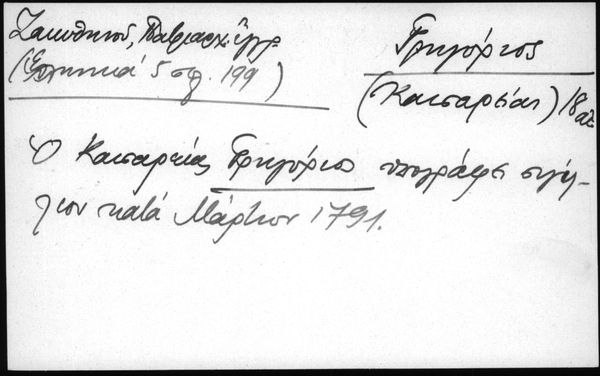 Ζακυθηνού, Πατριαρχ. έγγρ.
(Ελληνικά 5 σελ. 199)
Γρηγόριος
(Καισαρείας) 18 αἰ.
Ὁ Καισαρείας Γρηγόριος υπογράφει σιγίλ-
λιον κατά Μάρτιον 1791.